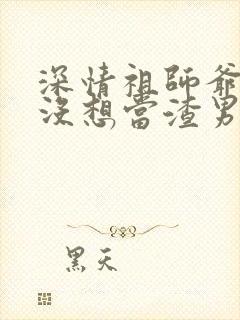 深情祖師爺
沒想當渣男
黑天